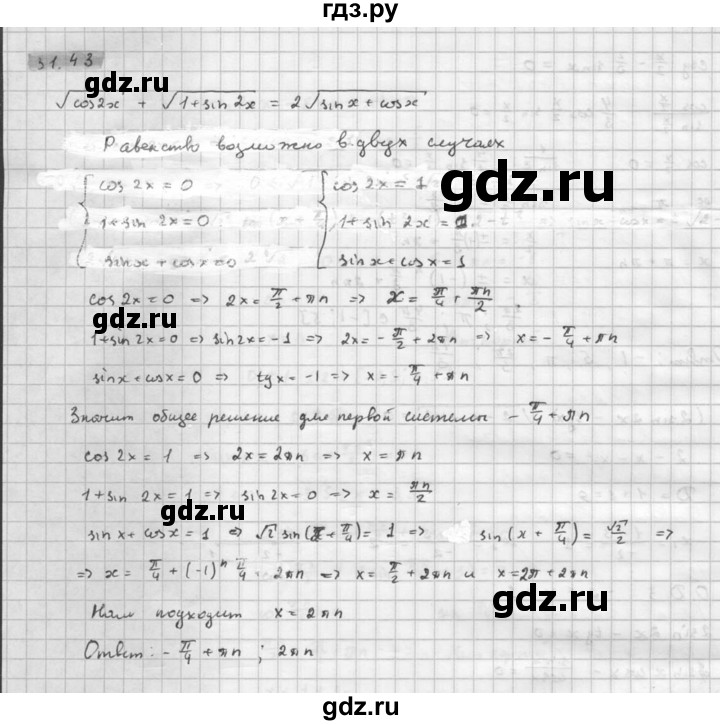 гдз.ру
31.43
gdz.ru
√cos2x + √1+sin2x = 2√sinx+cosx
Равенство возможно в двух случаях
gdz.ru
{ cos 2x = 0 { cos 2x = 1
1+sin 2x = 0 1+sin 2x = 1
sinx + cosx = 0 sinx + cosx = 1
cos 2x = 0 => 2x = π/2 + πn => x = π/4 + πn/2 ;
1+sin 2x = 0 => sin2x = -1 => 2x = -π/2 + 2πn => x = -π/4 + πn
sinx + cosx = 0 => tgx = -1 => x = -π/4 + πn
Значит общее решение для первой системы -π/4 + πn
cos 2x = 1 => 2x = 2πn => x = πn
1+sin 2x = 1 => sin 2x = 0 => x = πn/2
gdz.ru
sin x + cos x = 1 => √2 sin(x + π/4) = 1 => sin(x + π/4) = √2/2 =>
=> x = π/4 + (-1)ⁿ π/4 · 2πn => x = π/2 + 2πn и x = 2π + 2πn
gdz.ru
Нам подходит x = 2πn
Ответ: -π/4 + πn ; 2πn
gdz.ru